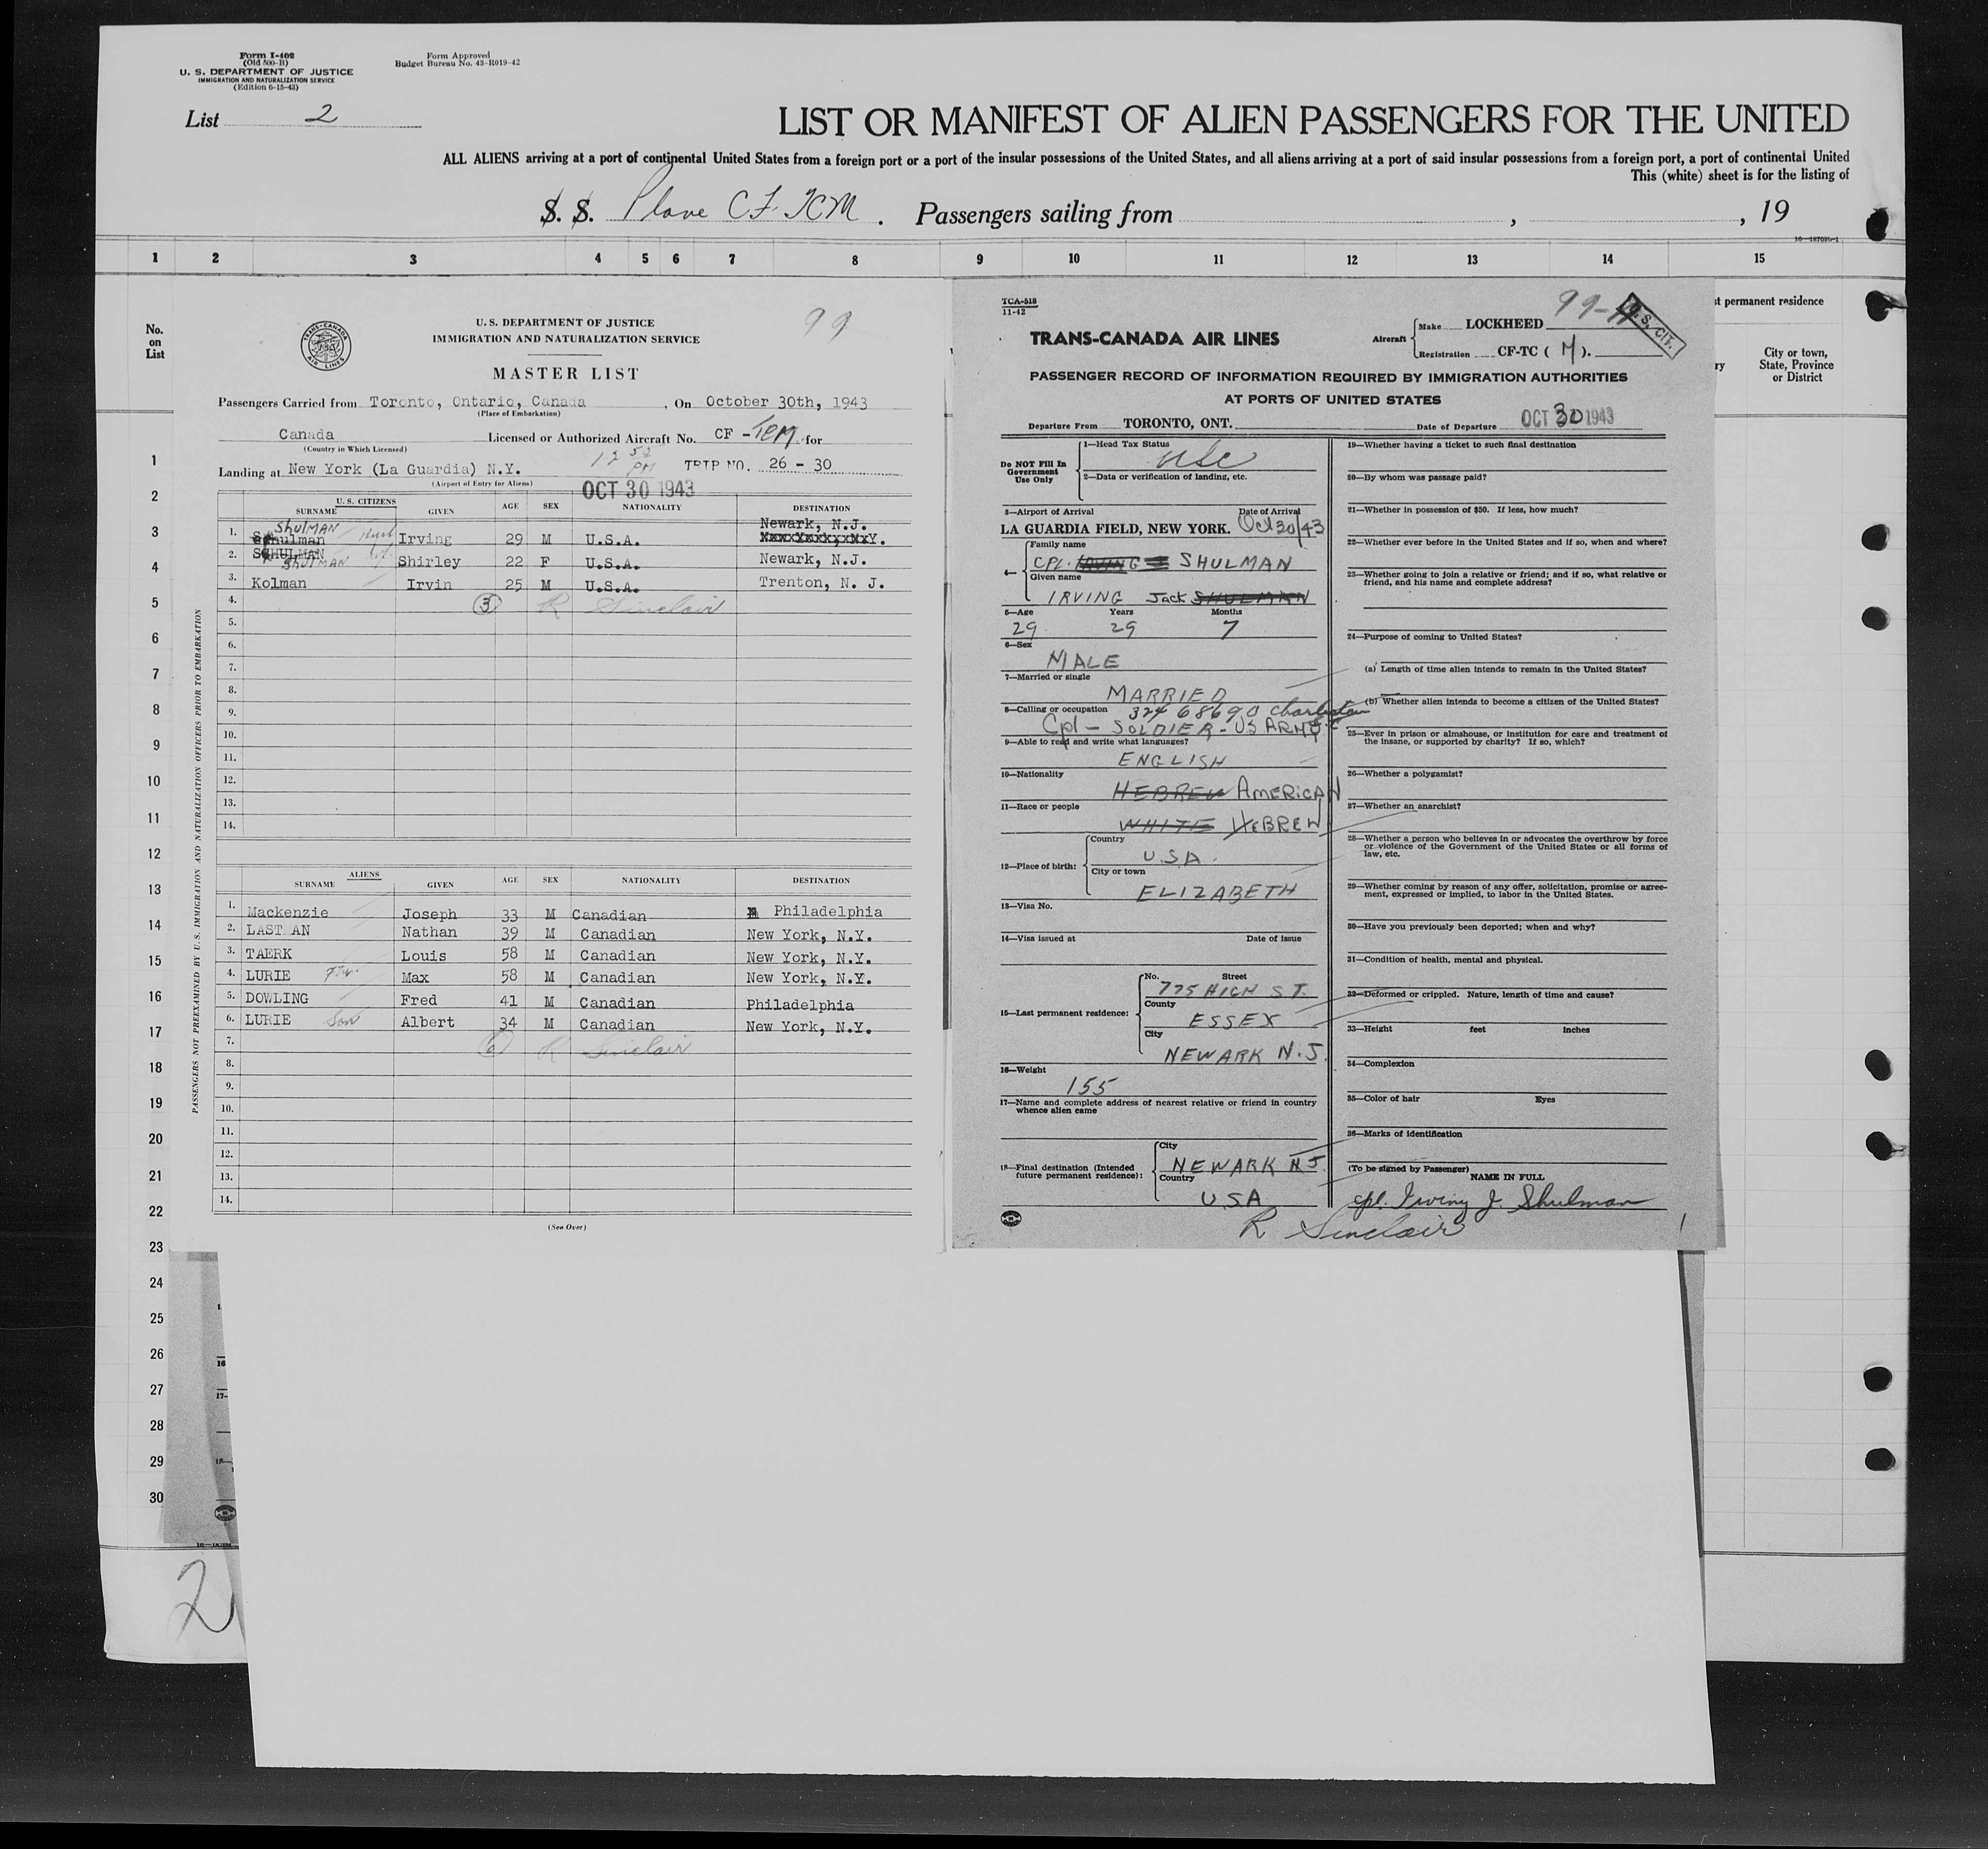 Form I-402
(Old 500-B)
U. S. DEPARTMENT OF JUSTICE
IMMIGRATION AND NATURALIZATION SERVICE
(Edition 6-15-43)
Form Approved
Budget Bureau No. 43-R019-42
List 2
LIST OR MANIFEST OF ALIEN PASSENGERS FOR THE UNITED
ALL ALIENS arriving at a port of continental United States from a foreign port or a port of the insular possessions of the United States, and all aliens arriving at a port of said insular possessions from a foreign port, a port of continental United
This (white) sheet is for the listing of
S. S. Plane CF-TCM. Passengers sailing from , , 19
1 2 3 4 5 6 7 8 9 10 11 12 13 14 15
No.
on
List
1
2
3
4
5
6
7
8
9
10
11
12
13
14
15
16
17
18
19
20
21
22
23
24
25
26
27
28
29
30
2
99
TRANS-CANADA
AIR LINES
U. S. DEPARTMENT OF JUSTICE
IMMIGRATION AND NATURALIZATION SERVICE
MASTER LIST
Passengers Carried from Toronto, Ontario, Canada, On October 30th, 1943
(Place of Embarkation)
Canada Licensed or Authorized Aircraft No. CF -TCM for
(Country in Which Licensed)
12 52 PM
Landing at New York (La Guardia) N.Y. TRIP NO. 26 - 30
(Airport of Entry for Aliens)
OCT 30 1943
U. S. CITIZENS
SURNAME GIVEN AGE SEX NATIONALITY DESTINATION
Shulman Newark, N.J.
1. Schulman Irving 29 M U.S.A.
2. SCHULMAN Shirley 22 F U.S.A. Newark, N.J.
SHULMAN
3. Kolman Irvin 25 M U.S.A. Trenton, N. J.
4. 3 R Sinclair
5.
6.
7.
8.
9.
10.
11.
12.
13.
14.
ALIENS
SURNAME GIVEN AGE SEX NATIONALITY DESTINATION
1. Mackenzie Joseph 33 M Canadian Philadelphia
2. LAST AN Nathan 39 M Canadian New York, N.Y.
3. TAERK Louis 58 M Canadian New York, N.Y.
4. LURIE Max 58 M Canadian New York, N.Y.
5. DOWLING Fred 41 M Canadian Philadelphia
6. LURIE Son Albert 34 M Canadian New York, N.Y.
7. 6 R Sinclair
8.
9.
10.
11.
12.
13.
14.
(See Over)
PASSENGERS NOT PREEXAMINED BY U. S. IMMIGRATION AND NATURALIZATION OFFICERS PRIOR TO EMBARKATION
TCA-518
11-42
99-
U. S. CIT.
TRANS-CANADA AIR LINES
Aircraft
Make LOCKHEED
Registration CF-TC ( M ).
PASSENGER RECORD OF INFORMATION REQUIRED BY IMMIGRATION AUTHORITIES
AT PORTS OF UNITED STATES
Departure From TORONTO, ONT. Date of Departure OCT 30 1943
Do NOT Fill In
Government
Use Only
1—Head Tax Status
USC
2—Data or verification of landing, etc.
3—Airport of Arrival Date of Arrival
LA GUARDIA FIELD, NEW YORK. Oct 30/43
4—
Family name
CPL. IRVING SHULMAN
Given name
IRVING Jack SHULMAN
5—Age Years Months
29 29 7
6—Sex
MALE
7—Married or single
MARRIED
8—Calling or occupation 32468690 Charleston S.C.
Cpl - SOLDIER - US ARMY
9—Able to read and write what languages?
ENGLISH
10—Nationality
HEBREW AMERICAN
11—Race or people
WHITE HEBREW
12—Place of birth:
Country
U.S.A.
City or town
ELIZABETH
13—Visa No.
14—Visa issued at Date of issue
15—Last permanent residence:
No. Street
775 HIGH ST.
County
ESSEX
City
NEWARK N.J.
16—Weight
155
17—Name and complete address of nearest relative or friend in country
whence alien came
18—Final destination (Intended
future permanent residence):
City
NEWARK N.J.
Country
USA
19—Whether having a ticket to such final destination
20—By whom was passage paid?
21—Whether in possession of $50. If less, how much?
22—Whether ever before in the United States and if so, when and where?
23—Whether going to join a relative or friend; and if so, what relative or
friend, and his name and complete address?
24—Purpose of coming to United States?
(a) Length of time alien intends to remain in the United States?
(b) Whether alien intends to become a citizen of the United States?
25—Ever in prison or almshouse, or institution for care and treatment of
the insane, or supported by charity? If so, which?
26—Whether a polygamist?
27—Whether an anarchist?
28—Whether a person who believes in or advocates the overthrow by force
or violence of the Government of the United States or all forms of
law, etc.
29—Whether coming by reason of any offer, solicitation, promise or agree-
ment, expressed or implied, to labor in the United States.
30—Have you previously been deported; when and why?
31—Condition of health, mental and physical.
32—Deformed or crippled. Nature, length of time and cause?
33—Height feet inches
34—Complexion
35—Color of hair Eyes
36—Marks of identification
(To be signed by Passenger)
NAME IN FULL
Cpl. Irving J. Shulman
R Sinclair
t permanent residence
ry
City or town,
State, Province
or District
16
17-
18—